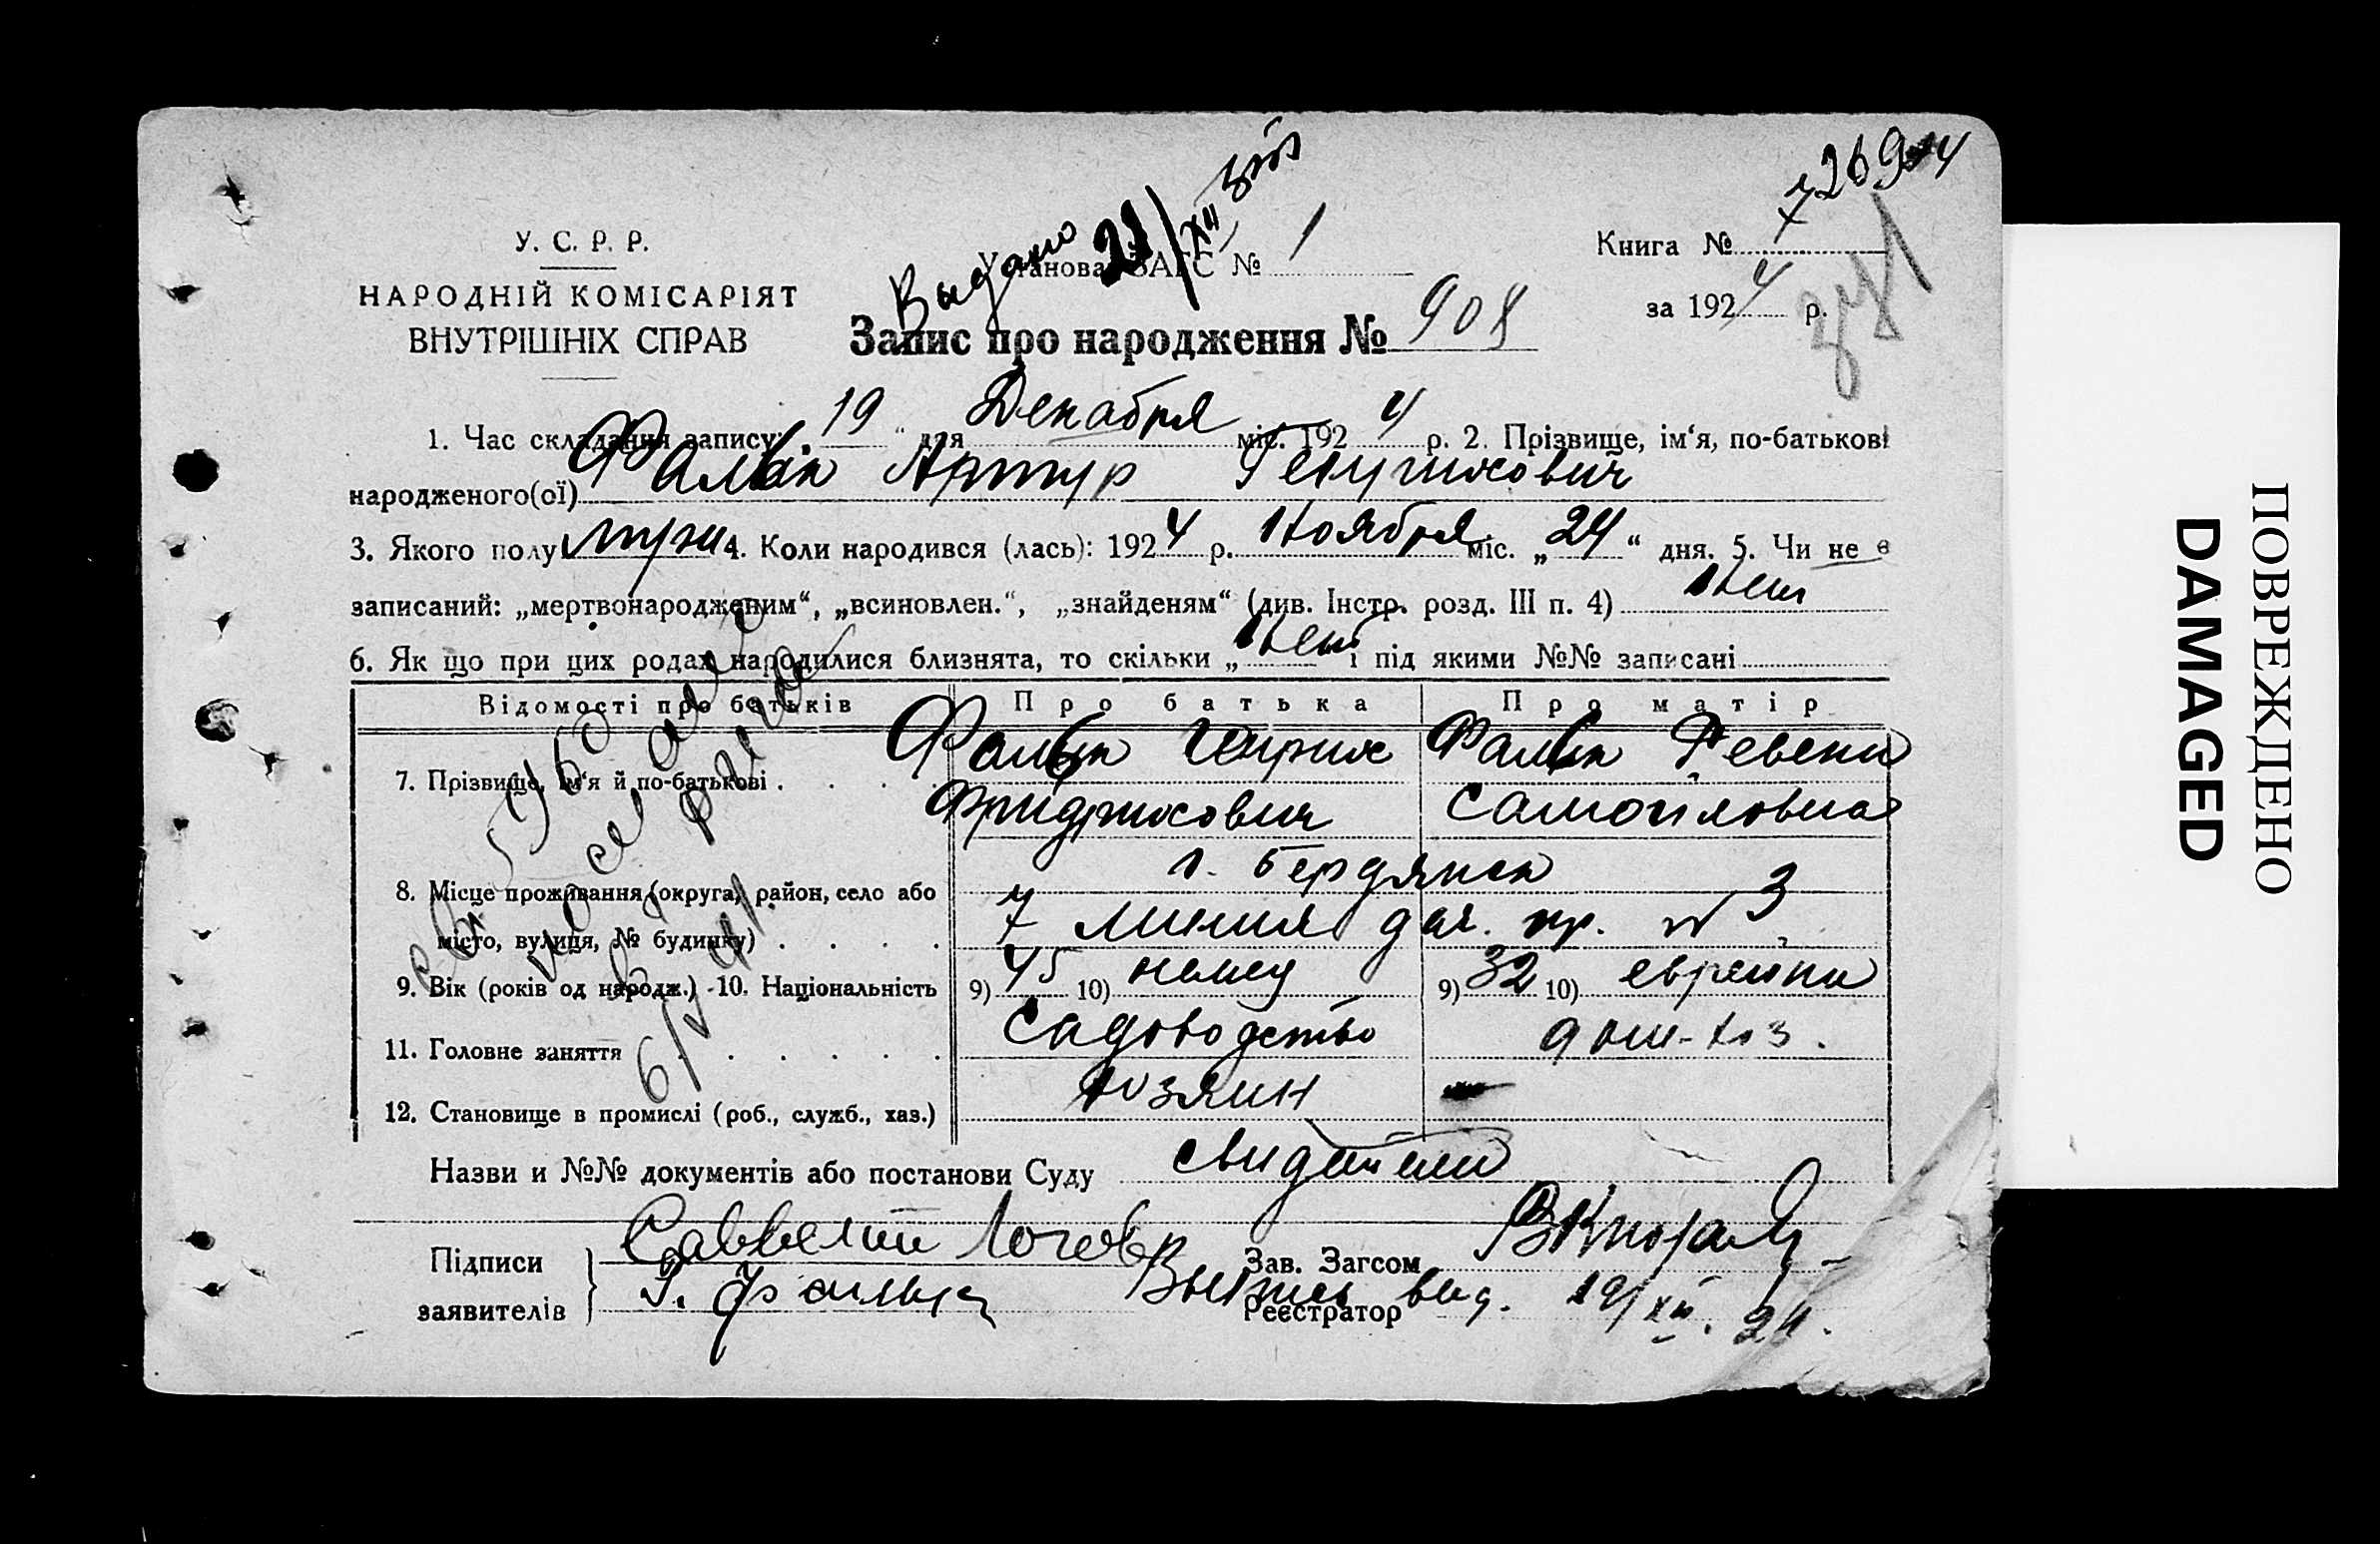 72694
У. С. Р. Р.
НАРОДНІЙ КОМІСАРІЯТ
ВНУТРІШНІХ СПРАВ
Выдано 21/XII
Установа ЗАГС № 1
Запис про народження № 908
Книга № 7
за 1924 р.
1. Час складання запису: „19“ дня Декабря міс. 1924 р. 2. Прізвище, ім‘я, по-батькові
народженого(ої) Фальк Артур Генрихович
3. Якого полу муж. 4. Коли народився (лась): 1924 р. Ноября міс. „24“ дня. 5. Чи не є
записаний: „мертвонародженим“, „всиновлен.“, „знайденям“ (див. Інстр. розд. III п. 4) Нет
6. Як що при цих родах народилися близнята, то скільки „Нет і під якими №№ записані
Відомості про батьків Про батька Про матір
7. Прізвище, ім‘я й по-батькові . . . . Фальк Генрих Фальк Ревека
Фридрихович Самоиловна
8. Місце проживання (округа, район, село або г. Бердянск
місто, вулиця, № будинку) . . . . 7 линия дач. пр. № 3
9. Вік (років од народж.) 10. Національність 9) 45 10) немец 9) 32 10) еврейка
11. Головне заняття . . . . . . Садоводство дом-хоз.
12. Становище в промислі (роб., служб., хаз.) хозяин
6/V 41
Назви и №№ документів або постанови Суду свидетели
Підписи
заявителів
Г. Фальк
Зав. Загсом
Реєстратор
Выпись выд. 19/XII. 24.
ПОВРЕЖДЕНО
DAMAGED